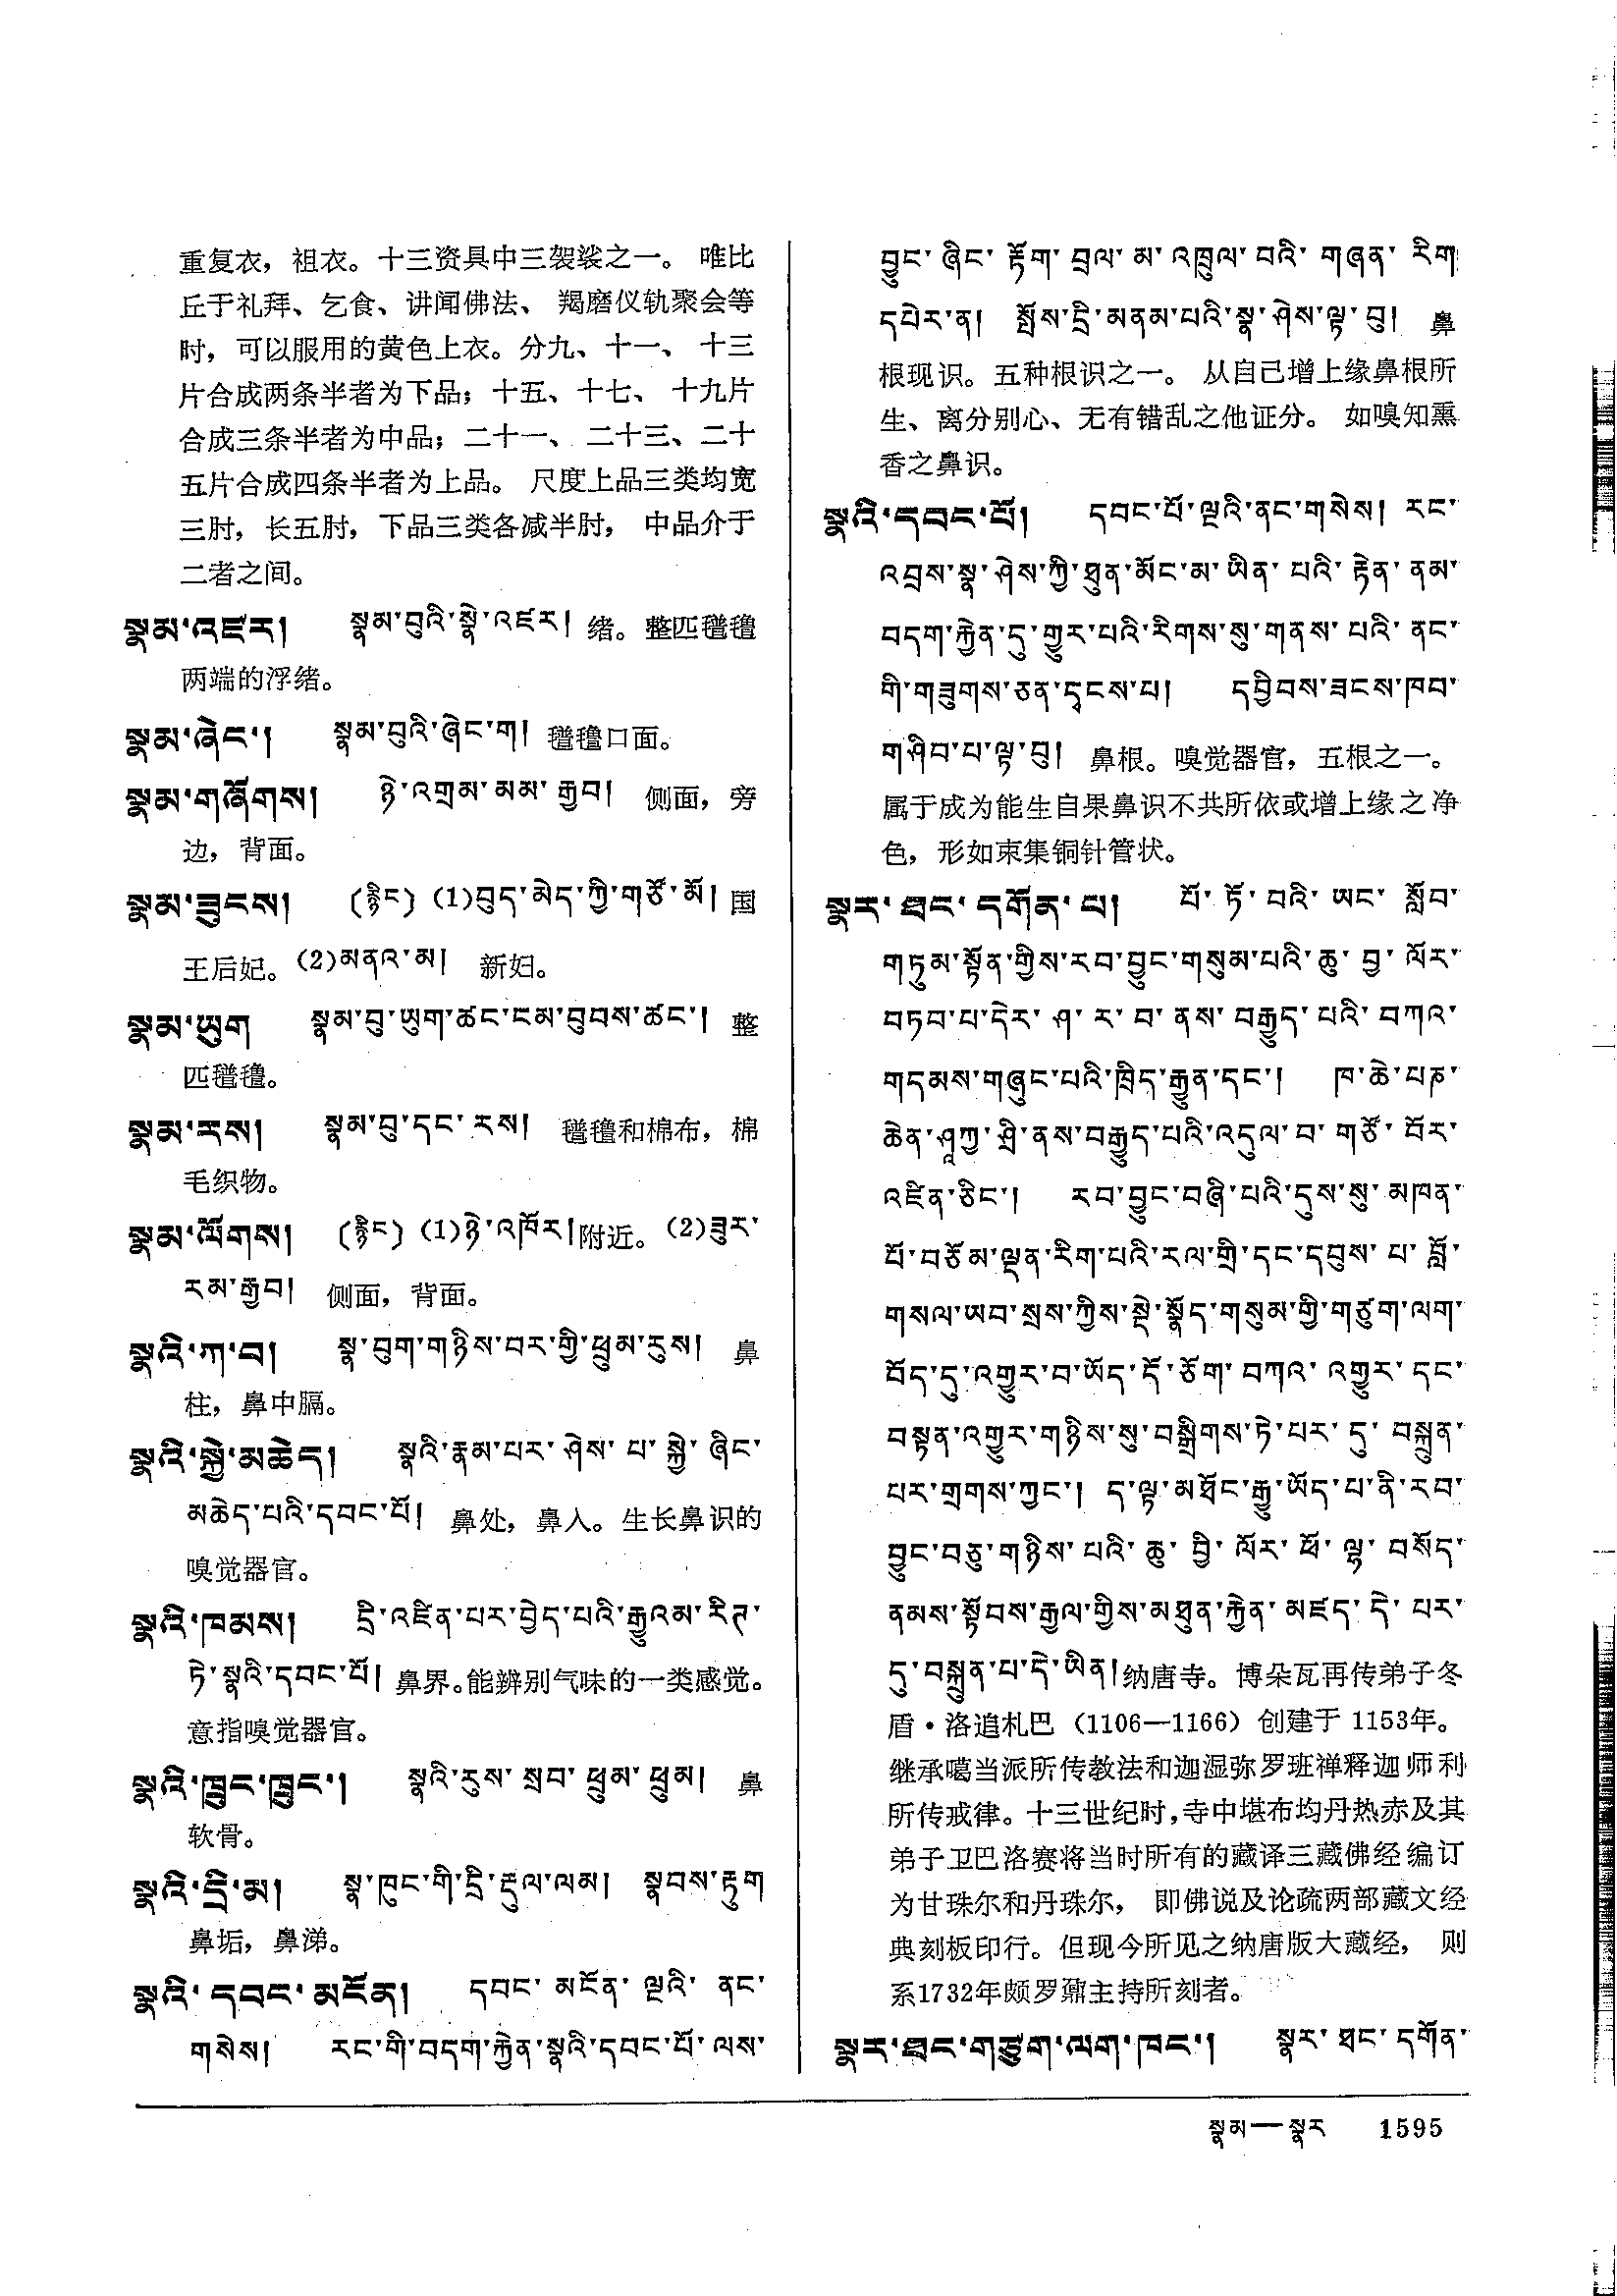 重复衣，祖衣。十三资具中三袈裟之一。 唯比
丘于礼拜、乞食、讲闻佛法、 羯磨仪轨聚会等
时，可以服用的黄色上衣。分九、十一、 十三
片合成两条半者为下品；十五、十七、 十九片
合成三条半者为中品；二十一、 二十三、二十
五片合成四条半者为上品。 尺度上品三类均宽
三肘，长五肘，下品三类各减半肘， 中品介于
二者之间。
སྣམ་འཛར། སྣམ་བུའི་སྣེ་འཛར། 绪。整匹氆氇
两端的浮绪。
སྣམ་ཞེང་། སྣམ་བུའི་ཞེང་ག། 氆氇口面。
སྣམ་གཞོགས། ཉེ་འགྲམ་མམ་རྒྱབ། 侧面，旁
边，背面。
སྣམ་ཟུངས། (རྙིང) (1)བུད་མེད་ཀྱི་གཙོ་མོ། 国
王后妃。(2)མནའ་མ། 新妇。
སྣམ་ཡུག སྣམ་བུ་ཡུག་ཚང་ངམ་བུབས་ཚང་། 整
匹氆氇。
སྣམ་རས། སྣམ་བུ་དང་རས། 氆氇和棉布，棉
毛织物。
སྣམ་ལོགས། (རྙིང) (1)ཉེ་འཁོར།附近。(2)ཟུར་
རམ་རྒྱབ། 侧面，背面。
སྣའི་ཀ་བ། སྣ་བུག་གཉིས་བར་གྱི་ཕྲུམ་རུས། 鼻
柱，鼻中膈。
སྣའི་སྐྱེ་མཆེད། སྣའི་རྣམ་པར་ཤེས་པ་སྐྱེ་ཞིང་
མཆེད་པའི་དབང་པོ། 鼻处，鼻入。生长鼻识的
嗅觉器官。
སྣའི་ཁམས། དྲི་འཛིན་པར་བྱེད་པའི་རྒྱུའམ་རིཊ་
ཏེ་སྣའི་དབང་པོ། 鼻界。能辨别气味的一类感觉。
意指嗅觉器官。
སྣའི་ཁྲུང་ཁྲུང་། སྣའི་རུས་སྲབ་ཕྲུམ་ཕྲུམ། 鼻
软骨。
སྣའི་དྲི་མ། སྣ་ཁུང་གི་དྲི་རྡུལ་ལམ། སྣབས་རྟུག
鼻垢，鼻涕。
སྣའི་དབང་མངོན། དབང་མངོན་ལྔའི་ནང་
གསེས། རང་གི་བདག་རྐྱེན་སྣའི་དབང་པོ་ལས་
བྱུང་ཞིང་རྟོག་བྲལ་མ་འཁྲུལ་བའི་གཞན་རིག
དཔེར་ན། སྤོས་དྲི་མནམ་པའི་སྣ་ཤེས་ལྟ་བུ། 鼻
根现识。五种根识之一。 从自己增上缘鼻根所
生、离分别心、无有错乱之他证分。 如嗅知熏
香之鼻识。
སྣའི་དབང་པོ། དབང་པོ་ལྔའི་ནང་གསེས། རང་
འབྲས་སྣ་ཤེས་ཀྱི་ཐུན་མོང་མ་ཡིན་པའི་རྟེན་ནམ་
བདག་རྐྱེན་དུ་གྱུར་པའི་རིགས་སུ་གནས་པའི་ནང་
གི་གཟུགས་ཅན་དྭངས་པ། དབྱིབས་ཟངས་ཁབ་
གཤིབ་པ་ལྟ་བུ། 鼻根。嗅觉器官，五根之一。
属于成为能生自果鼻识不共所依或增上缘之净
色，形如束集铜针管状。
སྣར་ཐང་དགོན་པ། པོ་ཏོ་བའི་ཡང་སློབ་
གཏུམ་སྟོན་གྱིས་རབ་བྱུང་གསུམ་པའི་ཆུ་བྱ་ལོར་
བཏབ་པ་དེར་ཤ་ར་བ་ནས་བརྒྱུད་པའི་བཀའ་
གདམས་གཞུང་པའི་ཁྲིད་རྒྱུན་དང་། ཁ་ཆེ་པཎ་
ཆེན་ཤཱཀྱ་ཤྲཱི་ནས་བརྒྱུད་པའི་འདུལ་བ་གཙོ་བོར་
འཛིན་ཅིང་། རབ་བྱུང་བཞི་པའི་དུས་སུ་མཁན་
པོ་བཅོམ་ལྡན་རིག་པའི་རལ་གྲི་དང་དབུས་པ་བློ་
གསལ་ཡབ་སྲས་ཀྱིས་སྡེ་སྣོད་གསུམ་གྱི་གཙུག་ལག་
བོད་དུ་འགྱུར་བ་ཡོད་དོ་ཅོག་བཀའ་འགྱུར་དང་
བསྟན་འགྱུར་གཉིས་སུ་བསྒྲིགས་ཏེ་པར་དུ་བསྐྲུན་
པར་གྲགས་ཀྱང་། ད་ལྟ་མཐོང་རྒྱུ་ཡོད་པ་ནི་རབ་
བྱུང་བཅུ་གཉིས་པའི་ཆུ་བྱི་ལོར་ཕོ་ལྷ་བསོད་
ནམས་སྟོབས་རྒྱལ་གྱིས་མཐུན་རྐྱེན་མཛད་དེ་པར་
དུ་བསྐྲུན་པ་དེ་ཡིན།纳唐寺。博朵瓦再传弟子冬
盾·洛追札巴（1106—1166）创建于 1153年。
继承噶当派所传教法和迦湿弥罗班禅释迦师利
所传戒律。十三世纪时，寺中堪布均丹热赤及其
弟子卫巴洛赛将当时所有的藏译三藏佛经编订
为甘珠尔和丹珠尔， 即佛说及论疏两部藏文经
典刻板印行。但现今所见之纳唐版大藏经， 则
系1732年颇罗鼐主持所刻者。
སྣར་ཐང་གཙུག་ལག་ཁང་། སྣར་ཐང་དགོན་
སྣམ—སྣར 1595